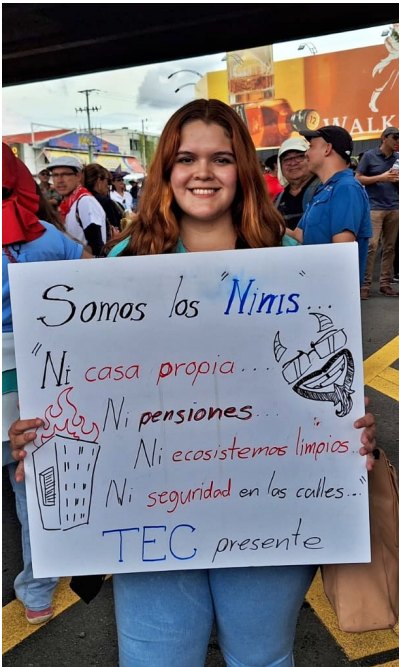 WALK
12
Somos los "Ninis"...
"Ni casa propia...
Ni pensiones...
Ni ecosistemas limpios...
Ni seguridad en las calles..."
TEC presente